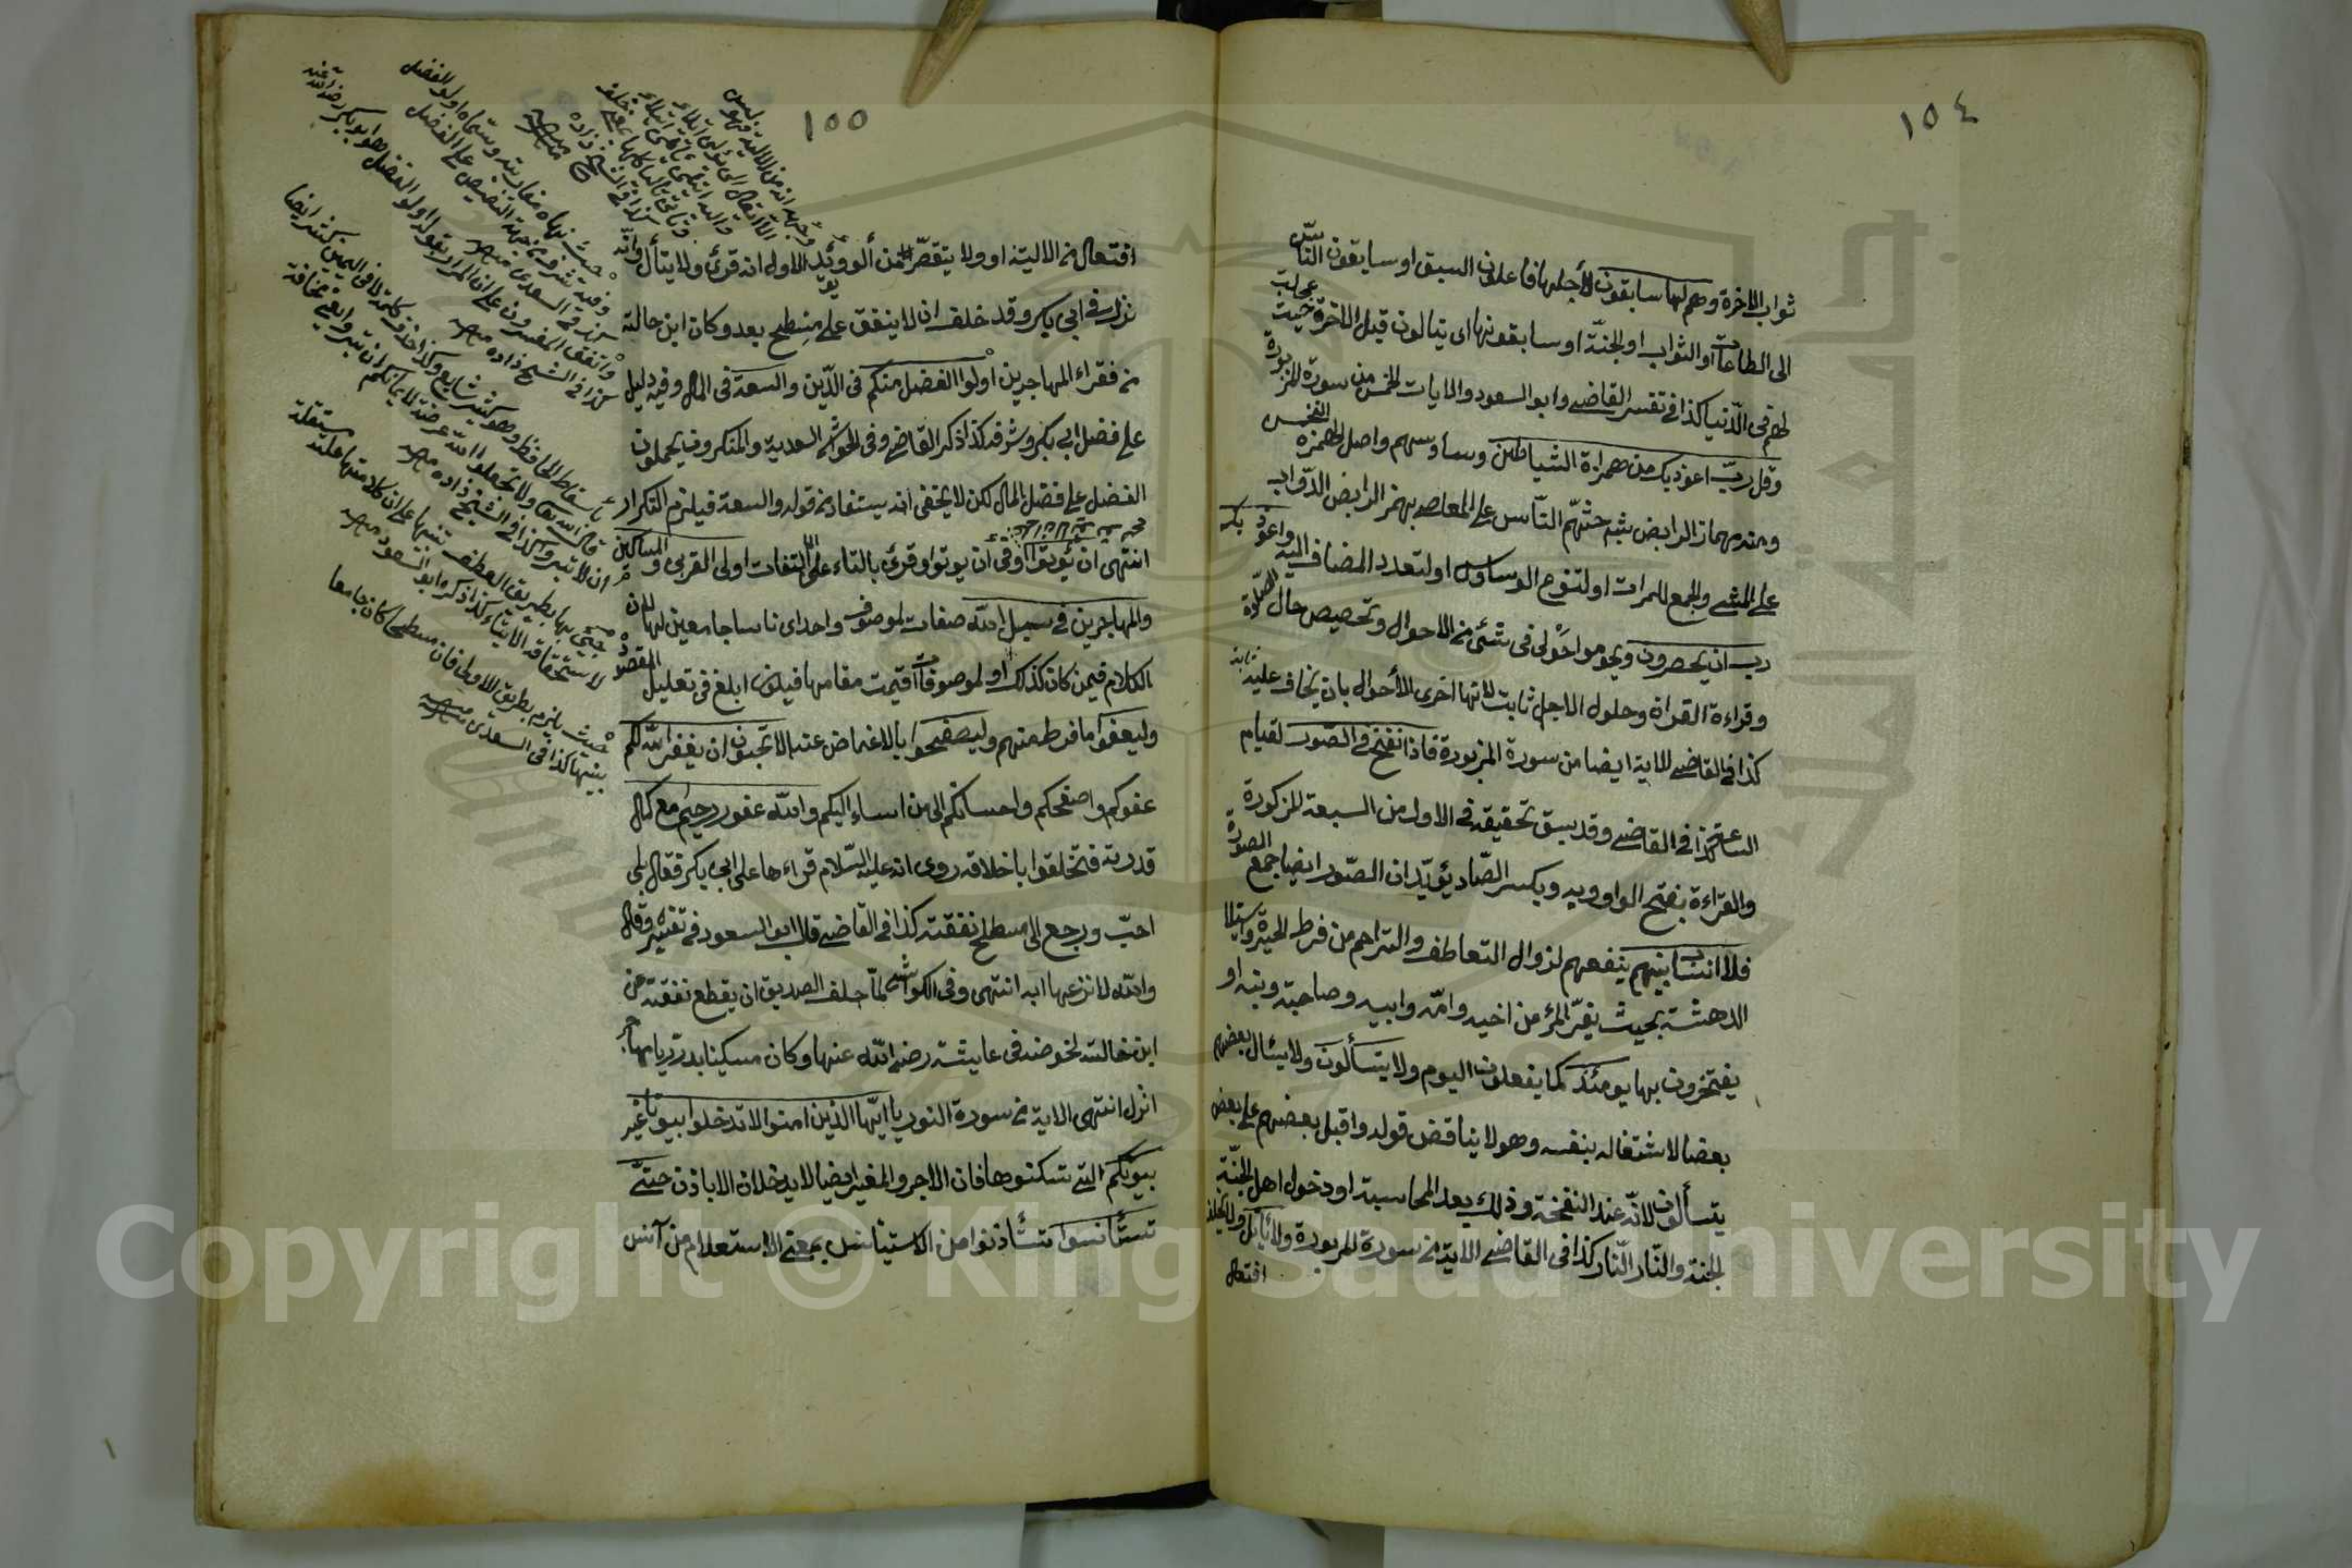 ١٥٤
ثواب الاخرة وهم لها سابقون لاجلها فاعلون السبق او سابقون الناس
الى الطاعات او الثواب او الجنة او سابقونها اى ينالون قبل الاخرة حيث عجلت
لهم فى الدنيا كذا فى تفسير القاضى وابو السعود والايات الخمس من سورة المزبورة
وقل رب اعوذ بك من همزات الشياطين وساوسهم واصل الهمزة النخس
ومنه مهماز الرايض شبه حثهم الناس على المعاصى بهمز الرايض الدواب
على المشى والجمع للمرات او لتنوع الوساوس او لتعدد المضاف اليه واعوذ بك
رب ان يحضرون ويحوموا حولى فى شئ من الاحوال وتخصيص حال الصلوة
وقراءة القران وحلول الاجل ثابت لانها احرى الأحوال بان يخاف عليه
كذا فى القاضى الاية ايضا من سورة المزبورة فاذا نفخ فى الصور لقيام
الساعة كذا فى القاضى وقد يسبق تحقيقه فى الاول من السبعة المذكورة
والقراءة بفتح الواو وبه وبكسر الصاد يؤيد ان الصور ايضا جمع الصورة
فلا انساب بينهم ينفعهم لزوال التعاطف والتراحم من فرط الحيرة واستيلا
الدهشة بحيث يفر المرء من اخيه وامه وابيه وصاحبته وبنيه او
يفتخرون بها يومئذ كما يفعلون اليوم ولا يتسألون ولا يسأل بعضهم
بعضا لاشتغاله بنفسه وهو لا يناقض قوله واقبل بعضهم على بعض
يتسألون لانه عند النفخة وذلك بعد المحاسبة او دخول اهل الجنة
الجنة والنار النار كذا فى القاضى الاية من سورة المزبورة ولا يأتل ولا يحلف
افتعال
١٥٥
افتعال من الالية او ولا يتقصر من ألو ويؤيد الاول انه قرئ ولا يتأل وانه
نزل فى ابى بكر وقد حلف ان لا ينفق على مسطح بعد وكان ابن خالته
من فقراء المهاجرين اولوا الفضل منكم فى الدين والسعة فى المال وفيه دليل
على فضل ابى بكر وشرفه كذا ذكر القاضى وفى الحواشى السعدية والمنكرون يحملون
الفضل على فضل المال لكن لا يخفى انه يستفاد من قوله والسعة فيلزم التكرار
انتهى ان يؤتوا او فى ان يوتوا وقرئ بالتاء على الالتفات اولى القربى والمساكين
والمهاجرين فى سبيل الله صفات لموصوف واحد اى ناسا جامعين لها لان
الكلام فيمن كان كذلك او لموصوفات اقيمت مقامها فيكون ابلغ فى تعليل المقصود
وليعفوا ما فرط منهم وليصفحوا بالاغماض عنه الا تحبون ان يغفر الله لكم
عفوكم واصفحكم واحسانكم الى من اساء اليكم والله غفور رحيم مع كمال
قدرته فتخلقوا باخلاقه روى انه عليه السلام قراءها على ابى بكر فقال بلى
احب ورجع الى مسطح نفقته كذا فى القاضى قال ابو السعود فى تفسيره وقال
والله لا انزعها ابدا انتهى وفى الكواشى لما حلف الصديق ان يقطع نفقته عن
ابن خالته لخوضه فى عايشة رضى الله عنها وكان مسكينا بدريا مهاجرا
انزل انتهى الاية من سورة النور يا ايها الذين امنوا لا تدخلوا بيوتا غير
بيوتكم التى تسكنوها فان الاجر والمغير ايضا لا يدخلان الا باذن حتى
تستأنسوا تستأذنوا من الاستيناس بمعنى الاستعلام من آنس
وجهه انه من الالية فهو ليس
كذا فى الشيخ زاده
حيث نهاه مغاربته وسماه اولو الفضل
وفيه شرف من جهة التنصيص على الفضل
كذا فى السعدى
واتفق المفسرون على ان المراد بقوله اولو الفضل هو ابو بكر رضى الله عنه
كذا فى الشيخ زاده
قال الله تعالى ولا تجعلوا الله عرضة لايمانكم ان تبروا
كذا فى الشيخ زاده
جئ بها بطريق العطف تنبيها على ان كلا منها علة مستقلة
لاستحقاقه الايتاء كذا ذكره ابو السعود
حيث يلزم بطريق الاولى فان مسطحا كان جامعا
بينها كذا فى السعدى
Copyright © King Saud University